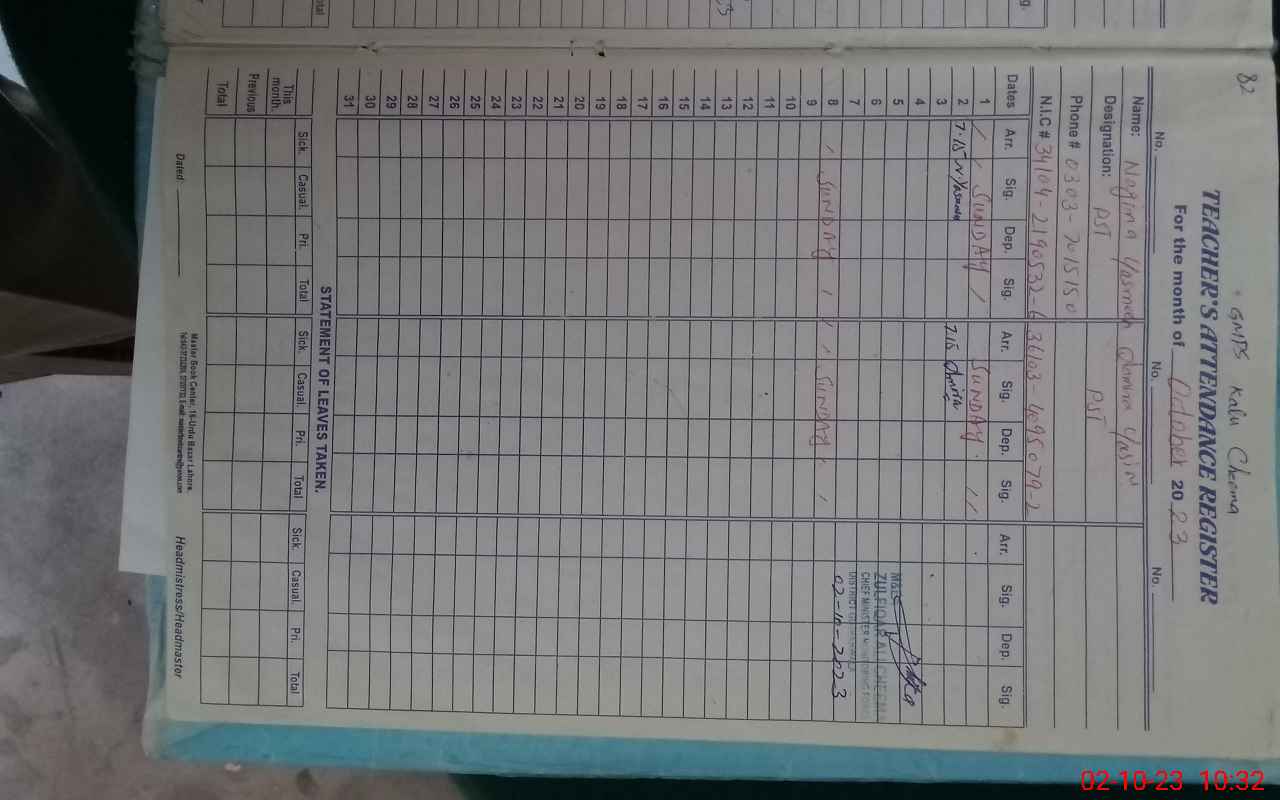 82
GMPS Kalu Cheema
TEACHER'S ATTENDANCE REGISTER
For the month of October 2023
No. No. No.
Name: Nagina Yasmeen Samina Yasin
Designation: PST PST
Phone # 0303-7015150
N.I.C # 34104-2190532-6 36103-4095079-2
Dates Arr. Sig. Dep. Sig. Arr. Sig. Dep. Sig. Arr. Sig. Dep. Sig.
1 SUNDAY SUNDAY
2 7.15 N.Yasmeen 7.15
3
4
5
6
7
8 SUNDAY SUNDAY
9
10
11
12
13
14
15
16
17
18
19
20
21
22
23
24
25
26
27
28
29
30
31
M&E
ZULFIQAR ALI CHEEMA
CHIEF MINISTER MONITORING FORCE
02-10-2023
STATEMENT OF LEAVES TAKEN.
Sick. Casual. Pri. Total Sick. Casual. Pri. Total Sick. Casual. Pri. Total
This month.
Previous
Total
Dated
Master Book Center, 16-Urdu Bazar Lahore.
Headmistress/Headmaster
02-10-23 10:32